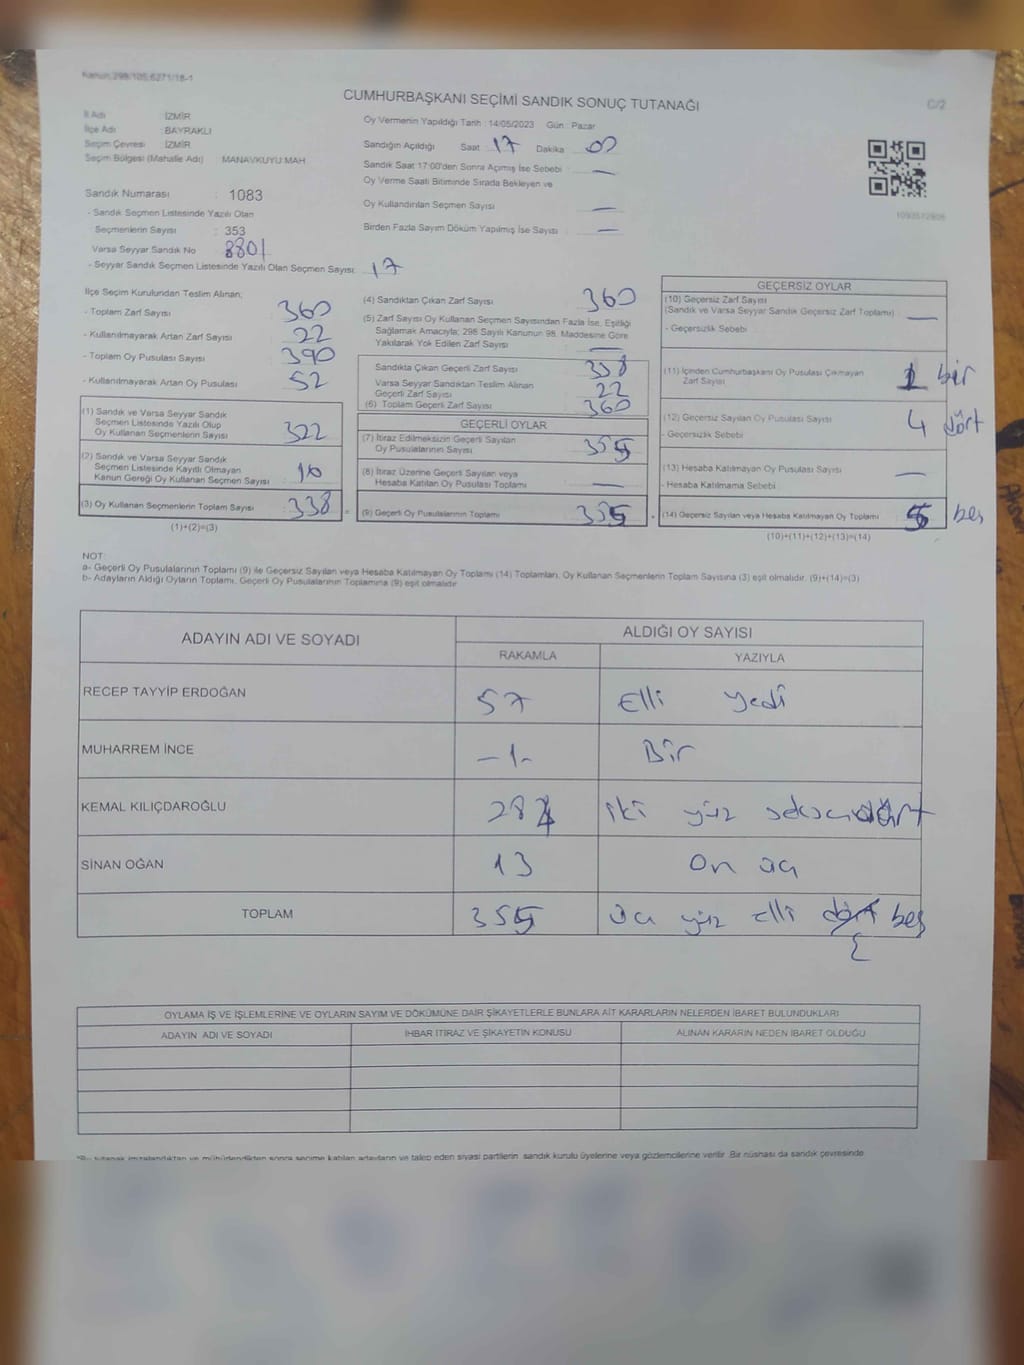 Kanun:298/105,6271/18-1
CUMHURBAŞKANI SEÇİMİ SANDIK SONUÇ TUTANAĞI
C/2
İl Adı : İZMİR
İlçe Adı : BAYRAKLI
Seçim Çevresi : İZMİR
Seçim Bölgesi (Mahalle Adı) : MANAVKUYU MAH.
Sandık Numarası : 1083
- Sandık Seçmen Listesinde Yazılı Olan
Seçmenlerin Sayısı : 353
Varsa Seyyar Sandık No 8801
- Seyyar Sandık Seçmen Listesinde Yazılı Olan Seçmen Sayısı: 17
Oy Vermenin Yapıldığı Tarih : 14/05/2023 Gün : Pazar
Sandığın Açıldığı Saat : 17 Dakika : 00
Sandık Saat 17:00'den Sonra Açılmış İse Sebebi : —
Oy Verme Saati Bitiminde Sırada Bekleyen ve
Oy Kullandırılan Seçmen Sayısı : —
Birden Fazla Sayım Döküm Yapılmış İse Sayısı : —
İlçe Seçim Kurulundan Teslim Alınan;
- Toplam Zarf Sayısı : 360
- Kullanılmayarak Artan Zarf Sayısı : 22
- Toplam Oy Pusulası Sayısı : 390
- Kullanılmayarak Artan Oy Pusulası : 52
(1) Sandık ve Varsa Seyyar Sandık
Seçmen Listesinde Yazılı Olup
Oy Kullanan Seçmenlerin Sayısı : 322
(2) Sandık ve Varsa Seyyar Sandık
Seçmen Listesinde Kayıtlı Olmayan
Kanun Gereği Oy Kullanan Seçmen Sayısı : 16
(3) Oy Kullanan Seçmenlerin Toplam Sayısı : 338
(1)+(2)=(3)
(4) Sandıktan Çıkan Zarf Sayısı : 360
(5) Zarf Sayısı Oy Kullanan Seçmen Sayısından Fazla İse, Eşitliği
Sağlamak Amacıyla; 298 Sayılı Kanunun 98. Maddesine Göre
Yakılarak Yok Edilen Zarf Sayısı : —
Sandıkta Çıkan Geçerli Zarf Sayısı : 338
Varsa Seyyar Sandıktan Teslim Alınan
Geçerli Zarf Sayısı : 22
(6) Toplam Geçerli Zarf Sayısı : 360
GEÇERLİ OYLAR
(7) İtiraz Edilmeksizin Geçerli Sayılan
Oy Pusulalarının Sayısı : 355
(8) İtiraz Üzerine Geçerli Sayılan veya
Hesaba Katılan Oy Pusulası Toplamı : —
(9) Geçerli Oy Pusulalarının Toplamı : 355
GEÇERSİZ OYLAR
(10) Geçersiz Zarf Sayısı
(Sandık ve Varsa Seyyar Sandık Geçersiz Zarf Toplamı) : —
- Geçersizlik Sebebi
(11) İçinden Cumhurbaşkanı Oy Pusulası Çıkmayan
Zarf Sayısı : 1 bir
(12) Geçersiz Sayılan Oy Pusulası Sayısı : 4 dört
- Geçersizlik Sebebi
(13) Hesaba Katılmayan Oy Pusulası Sayısı : —
- Hesaba Katılmama Sebebi :
(14) Geçersiz Sayılan veya Hesaba Katılmayan Oy Toplamı : 5 beş
(10)+(11)+(12)+(13)=(14)
NOT:
a- Geçerli Oy Pusulalarının Toplamı (9) ile Geçersiz Sayılan veya Hesaba Katılmayan Oy Toplamı (14) Toplamları, Oy Kullanan Seçmenlerin Toplam Sayısına (3) eşit olmalıdır. (9)+(14)=(3)
b- Adayların Aldığı Oyların Toplamı, Geçerli Oy Pusulalarının Toplamına (9) eşit olmalıdır.
ADAYIN ADI VE SOYADI ALDIĞI OY SAYISI
RAKAMLA YAZIYLA
RECEP TAYYİP ERDOĞAN 57 Elli yedi
MUHARREM İNCE -1- Bir
KEMAL KILIÇDAROĞLU 284 iki yüz seksendört
SİNAN OĞAN 13 On üç
TOPLAM 355 üç yüz elli dört beş
OYLAMA İŞ VE İŞLEMLERİNE VE OYLARIN SAYIM VE DÖKÜMÜNE DAİR ŞİKAYETLERLE BUNLARA AİT KARARLARIN NELERDEN İBARET BULUNDUKLARI
ADAYIN ADI VE SOYADI İHBAR İTİRAZ VE ŞİKAYETİN KONUSU ALINAN KARARIN NEDEN İBARET OLDUĞU
*Bu tutanak imzalandıktan ve mühürlendikten sonra seçime katılan adayların ve talep eden siyasi partilerin sandık kurulu üyelerine veya gözlemcilerine verilir. Bir nüshası da sandık çevresinde